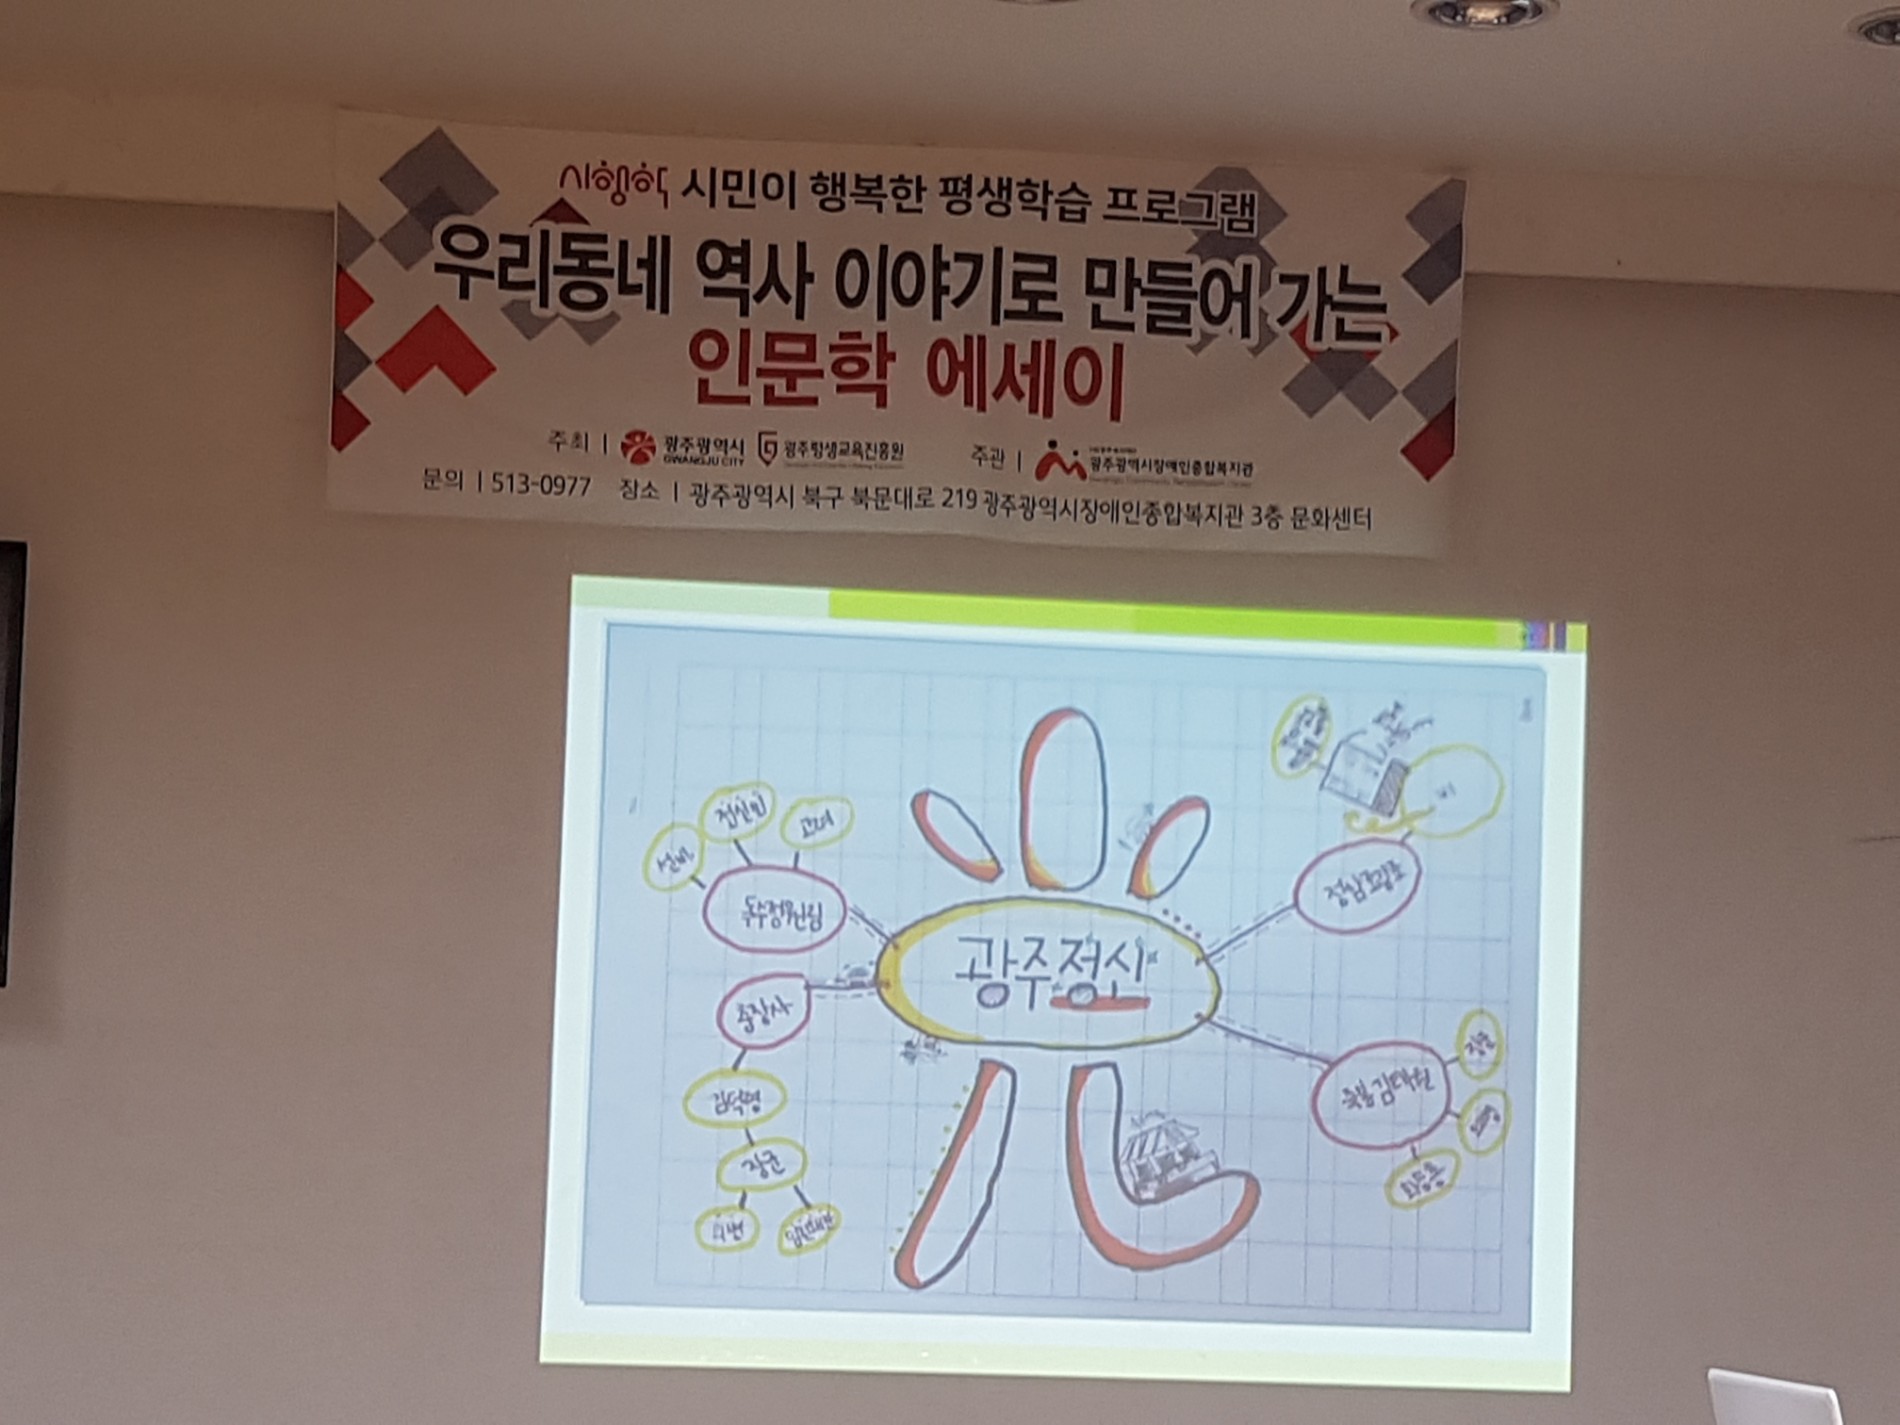 시행학 시민이 행복한 평생학습 프로그램
우리동네 역사 이야기로 만들어 가는
인문학 에세이
주최 | 광주광역시 GWANGJU CITY 광주평생교육진흥원 주관 | 광주광역시장애인종합복지관
문의 | 513-0977 장소 | 광주광역시 북구 북문대로 219 광주광역시장애인종합복지관 3층 문화센터
전신민
고려
선비
독수정원림
광주정신
충장사
김덕령
장군
의병
임진왜란
정암조광조
화순홍